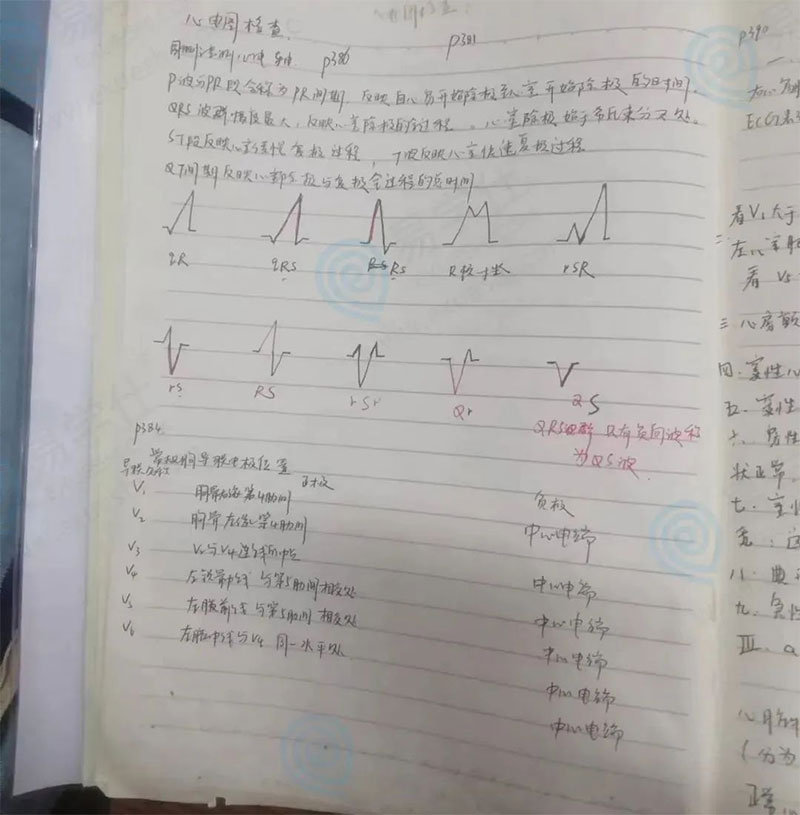 心电图检查
p380
p381
P波与PR段合称为PR间期,反映自心房开始除极至心室开始除极的时间.
QRS波群幅度最大,反映心室除极的全过程。心室除极始于希氏束分叉处.
ST段反映心室缓慢复极过程,T波反映心室快速复极过程
QT间期反映心室除极与复极全过程的总时间
qR
qRS
Rs
R
rSR
rs
RS
rSr
Qr
QS
QRS波群只有负向波称
为QS波.
p384
常规胸导联电极位置
导联
正极
负极
V1
胸骨右缘第4肋间
中心电端
V2
胸骨左缘第4肋间
中心电端
V3
V2与V4连线的中点
中心电端
V4
左锁骨中线与第5肋间相交处
中心电端
V5
左腋前线与第5肋间相交处
中心电端
V6
左腋中线与V4同一水平处.
中心电端
p390
看V1大于
看V5
三 心房颤
四.室性心
五.室性
六.房性
状正常,
七.室性
八.典
九.急性
III. a
(分为
正常